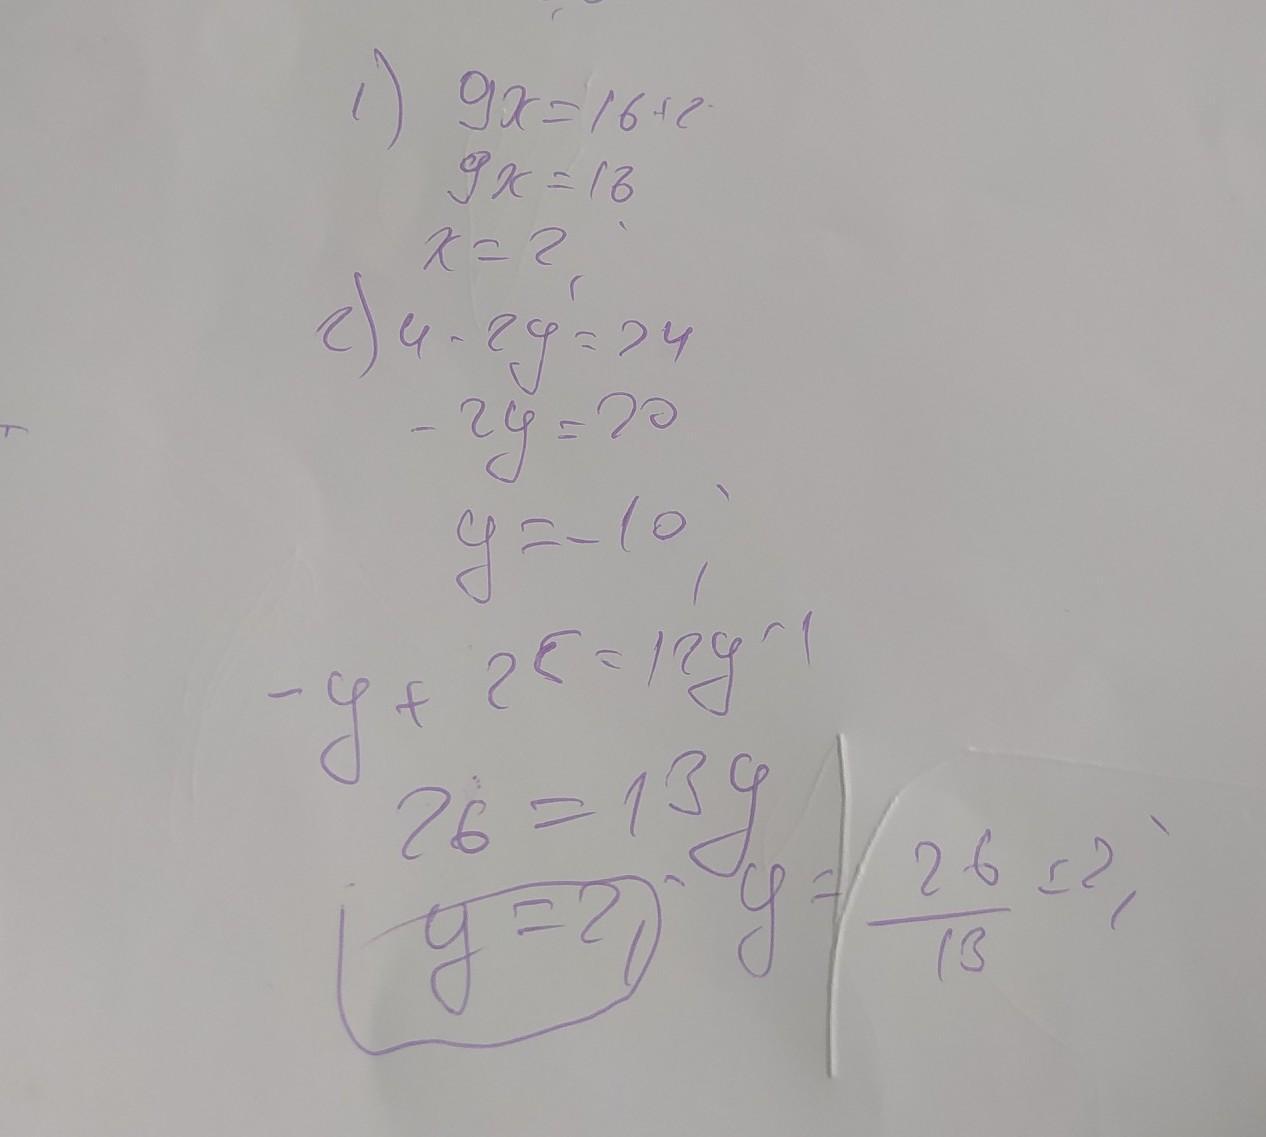 1) 9x=16+2
9x=18
x=2;
2) 4-2y=24
-2y=20
y=-10;
-y+25=12y-1
26=13y
y=2; y=26/13=2;